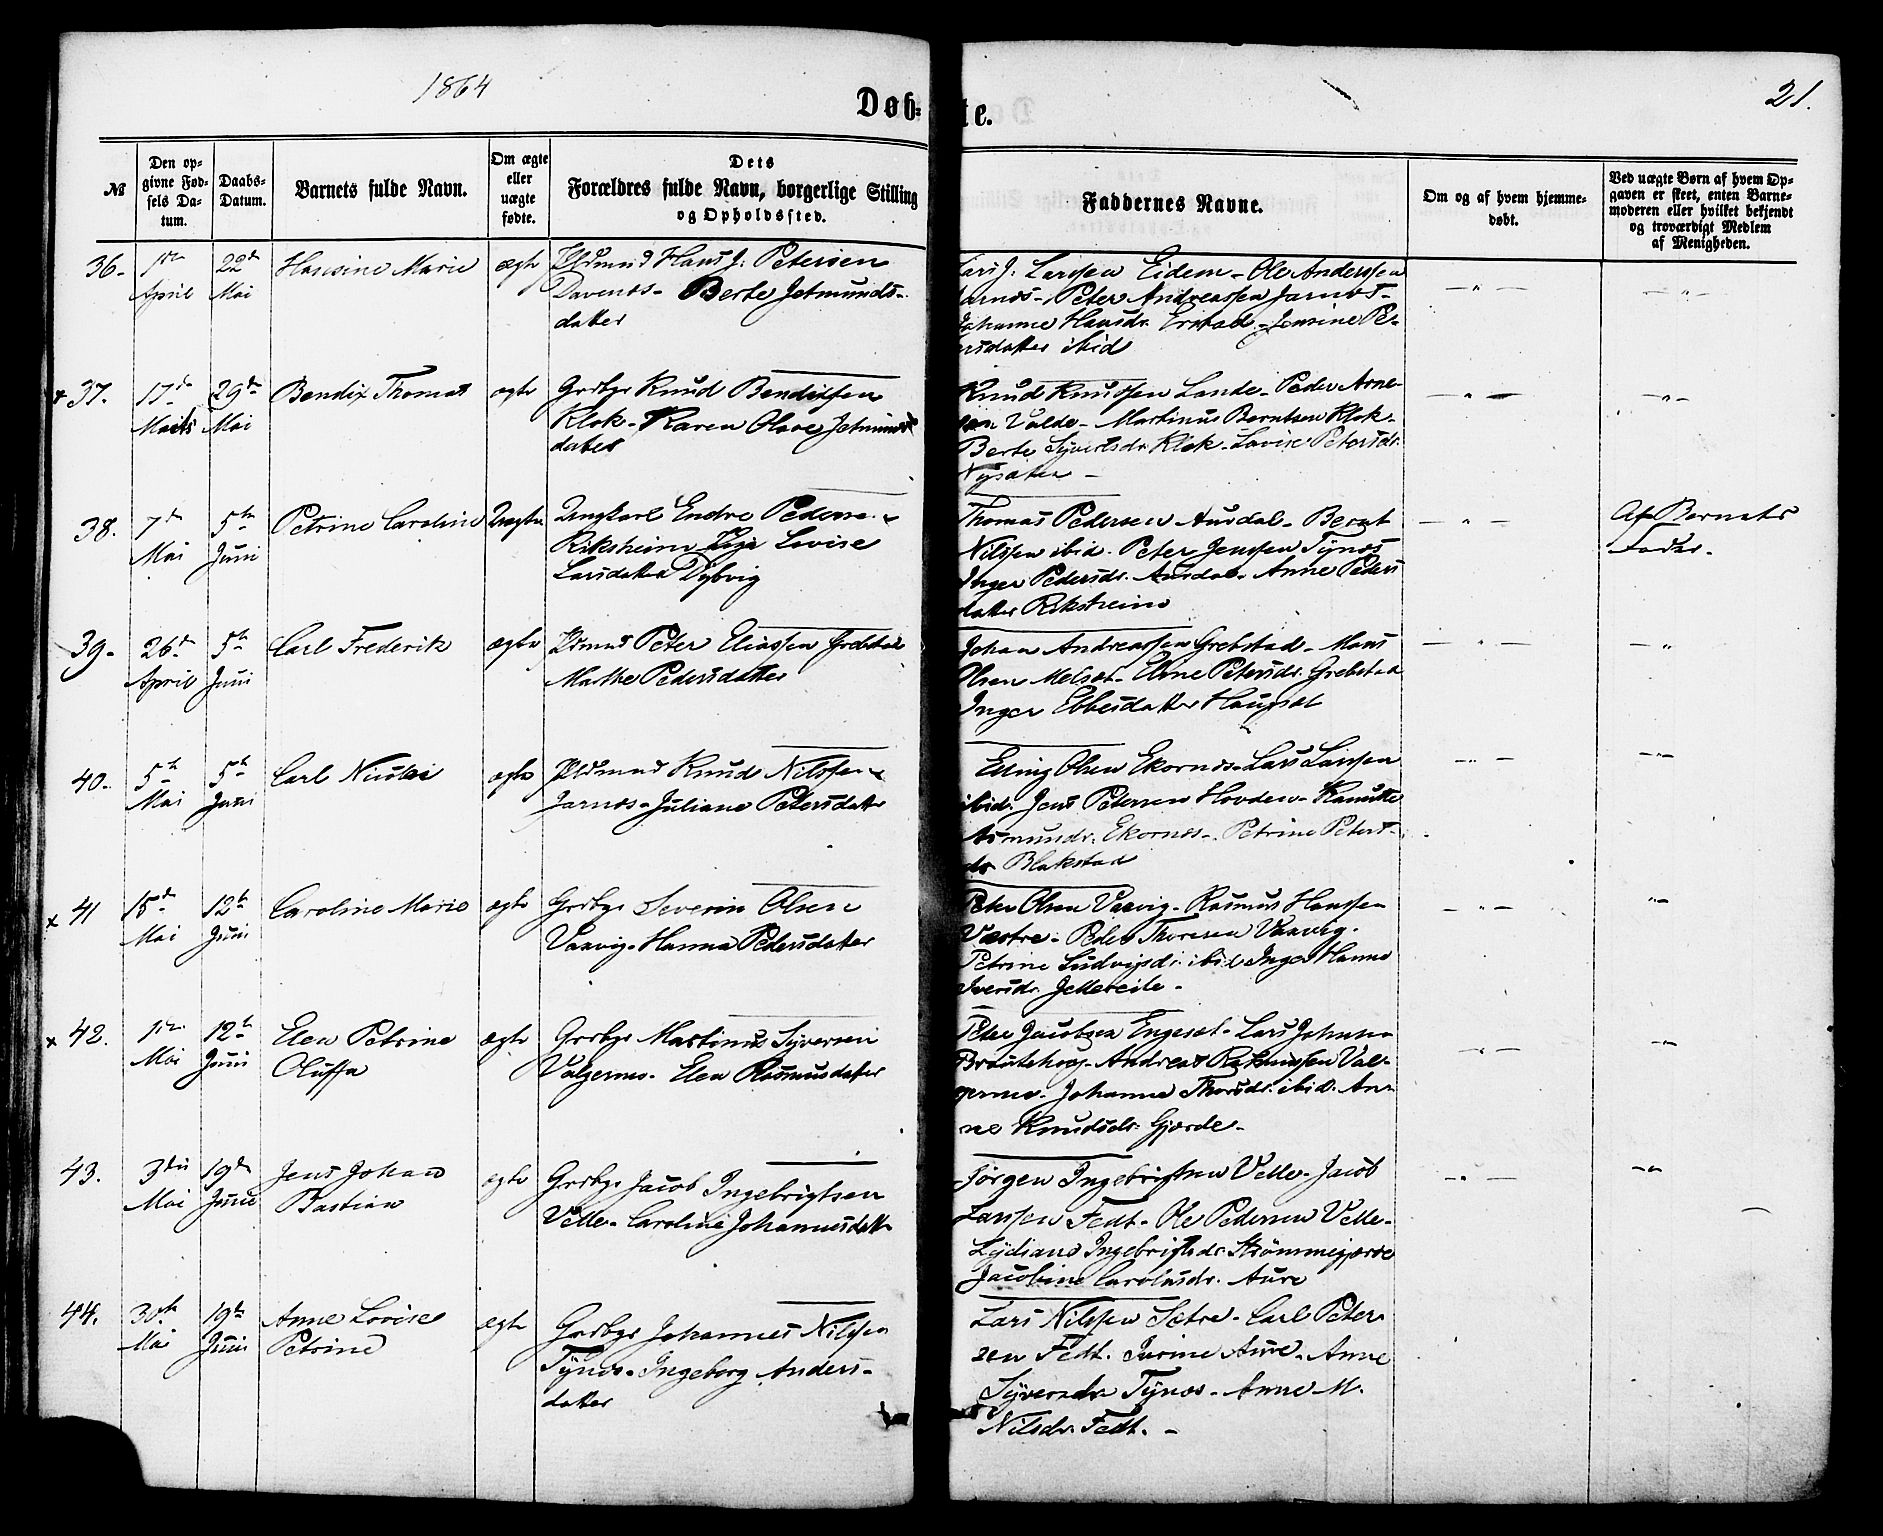 1864
Døb-
te.
21.
№
Den op-
givne Fød-
sels Da-
tum.
Daabs-
Datum.
Barnets fulde Navn.
Om ægte
eller
uægte
fødte.
Dets
Forældres fulde Navn, borgerlige Stilling
og Opholdssted.
Faddernes Navne.
Om og af hvem hjemme-
døbt.
Ved uægte Børn af hvem Op-
gaven er skeet, enten Barne-
moderen eller hvilket bekjendt
og troværdigt Medlem
af Menigheden.
36. 1ste April 22de Mai Hansine Marie ægte
Hans J. Petersen
Davenæs - Berte Jetmunds-
datter
Lars J. Larssen Eidem - Ole Anderssen
Jarnæs - Peter Andreassen Jarnæs -
Johanne Hansdr. Erstad - Jensine Pe-
tersdatter ibid
37. 17de Marts 29de Mai Bendix Thomas ægte
Grdbgr Knud Bendixsen
Klok - Karen Olave Jetmunds
datter
Knud Knudssen Lande - Peder Arne-
sen Valde - Martinus Berntsen Klok -
Berte Syvertsdr. Klok - Lovise Petersdr.
Nysæter -
38. 7de Mai 5te Juni Petrine Caroline Uægte
Ungkarl Endre Pedersen
Riksheim Lovise
Larsdatter Dybvig
Thomas Pedersen Aursdal - Bernt
Nilssen ibid. Peter Jenssen Tynæs
Inger Pedersdr. Aursdal - Anne Peders
datter Riksheim
Af Barnets
Fader.
39. 26de April 5te Juni Carl Frederik ægte
Peter Eliassen Grebstad
Marthe Pedersdatter
Johan Andreassen Grebstad - Mons
Olsen Melsæt - Elene Petersdr. Grebstad
Inger Ebbesdatter Haugset
40. 5te Mai 5te Juni Carl Nicolai ægte
Knud Nilssen
Jarnæs - Juliane Petersdatter
Elling Olsen Ekornæs - Lars Larssen
ibid. Jens Petersen Hovden - Kanutte
Asmundr. Ekornæs - Petrine Peters-
dr Blakstad
41 15de Mai 12te Juni Caroline Marie ægte
Grdbgr Severin Olsen
Vaavig - Hanna Pedersdatter
Peter Olsen Vaavig - Rasmus Hanssen
Vestre - Peder Thoresen Vaavig -
Petrine Ludvigsdr. ibid Inger Hanne
Iversdr.
42. 1ste Mai 12te Juni Elen Petrine
Oluffa ægte
Grdbgr Martinus Syversen
Valgermo - Elen Rasmusdatter
Peter Jacobsen Engeset - Lars Johnsen
Brautehoug - Andreas Rasmussen Val-
germo - Johanna Thorsdr. ibid. An-
ne Knudsdr. Gjærde -
43. 3die Mai 19de Juni Jens Johan
Bastian ægte
Grdbgr Jacob Ingebrigtsen
Velle - Caroline Johannesdatter
Jørgen Ingebrigtsen Velle - Jacob
Larssen Fedt - Ole Pedersen Velle -
Lydiane Ingebrigtsdr. Strømmegjærde
Jacobine Carolusdr. Aure
44. 30te Mai 19de Juni Anne Lovise
Petrine ægte
Grdbgr Johannes Nilssen
Tynæs - Ingeborg Anders-
datter
Lars Nilssen Sætre - Carl Peter-
sen Fedt. Aure - Anne
Syversdr Tynæs - Anne M.
Nilsdr. Fedt. -